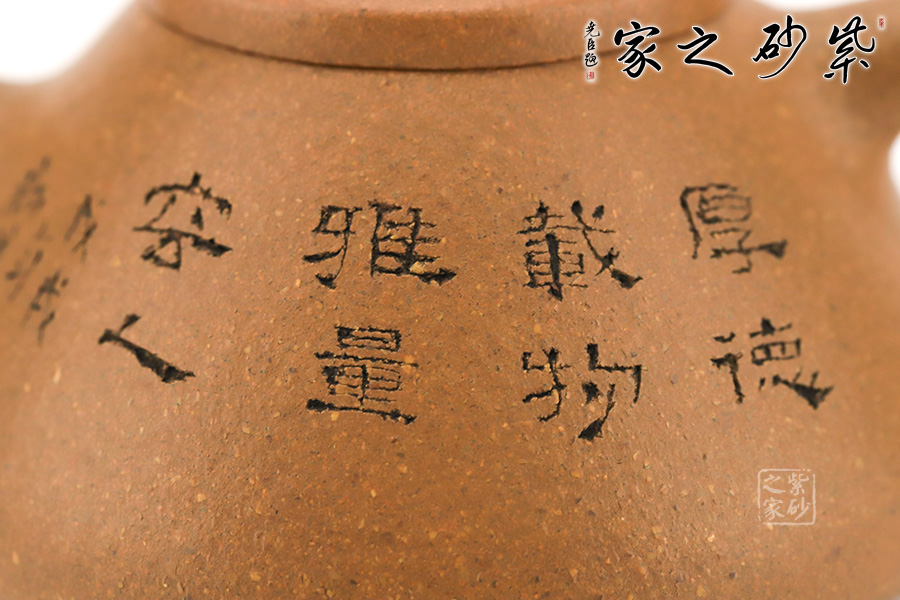 紫砂之家
尧臣题
厚德
载物
雅量
容人
紫砂
之家